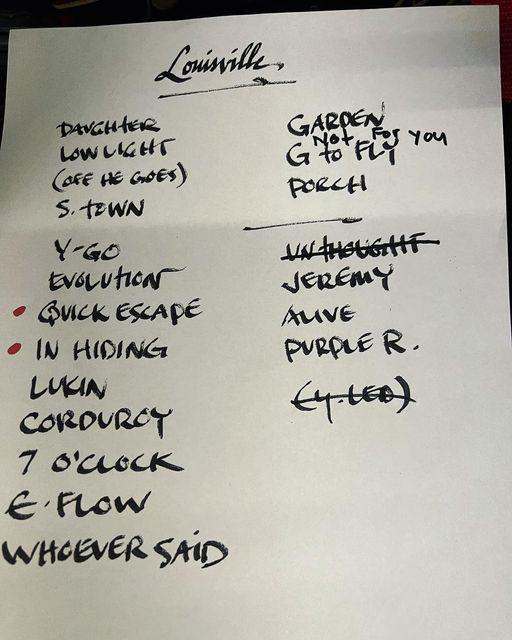 Louisville
DAUGHTER
LOW LIGHT
(OFF HE GOES)
S. TOWN
Y-GO
EVOLUTION
QUICK ESCAPE
IN HIDING
LUKIN
CORDUROY
7 O'CLOCK
E. FLOW
WHOEVER SAID
GARDEN
NOT FOR YOU
G to FLY
PORCH
UNTHOUGHT
JEREMY
ALIVE
PURPLE R.
(Y. LED)